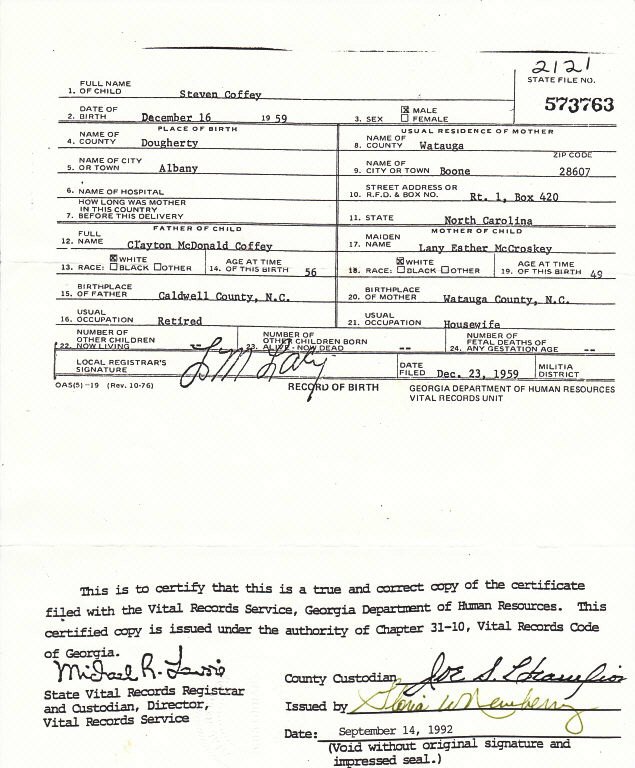 2121
STATE FILE NO.
573763
FULL NAME
1. OF CHILD Steven Coffey
DATE OF
2. BIRTH December 16 1959 3. SEX ☒ MALE
☐ FEMALE
PLACE OF BIRTH
NAME OF
4. COUNTY Dougherty
USUAL RESIDENCE OF MOTHER
NAME OF
8. COUNTY Watauga
NAME OF CITY
5. OR TOWN Albany
ZIP CODE
NAME OF
9. CITY OR TOWN Boone 28607
6. NAME OF HOSPITAL
STREET ADDRESS OR
10. R.F.D. & BOX NO. Rt. 1, Box 420
HOW LONG WAS MOTHER
IN THIS COUNTRY
7. BEFORE THIS DELIVERY
11. STATE North Carolina
FATHER OF CHILD
FULL
12. NAME Clayton McDonald Coffey
MOTHER OF CHILD
MAIDEN
17. NAME Lany Esther McCroskey
13. RACE: ☒ WHITE ☐ BLACK ☐ OTHER
AGE AT TIME
14. OF THIS BIRTH 56
18. RACE: ☒ WHITE ☐ BLACK ☐ OTHER
AGE AT TIME
19. OF THIS BIRTH 49
BIRTHPLACE
15. OF FATHER Caldwell County, N.C.
BIRTHPLACE
20. OF MOTHER Watauga County, N.C.
USUAL
16. OCCUPATION Retired
USUAL
21. OCCUPATION Housewife
NUMBER OF
OTHER CHILDREN
22. NOW LIVING --
NUMBER OF
OTHER CHILDREN BORN
23. ALIVE - NOW DEAD --
NUMBER OF
FETAL DEATHS OF
24. ANY GESTATION AGE --
LOCAL REGISTRAR'S
SIGNATURE
DATE
FILED Dec. 23, 1959
MILITIA
DISTRICT
OAS(5)-19 (Rev. 10-76) RECORD OF BIRTH GEORGIA DEPARTMENT OF HUMAN RESOURCES
VITAL RECORDS UNIT
This is to certify that this is a true and correct copy of the certificate
filed with the Vital Records Service, Georgia Department of Human Resources. This
certified copy is issued under the authority of Chapter 31-10, Vital Records Code
of Georgia.
Michael R. Lavoie
State Vital Records Registrar
and Custodian, Director,
Vital Records Service
County Custodian Joe S.
Issued by Gloria W Newberry
Date: September 14, 1992
(Void without original signature and
impressed seal.)